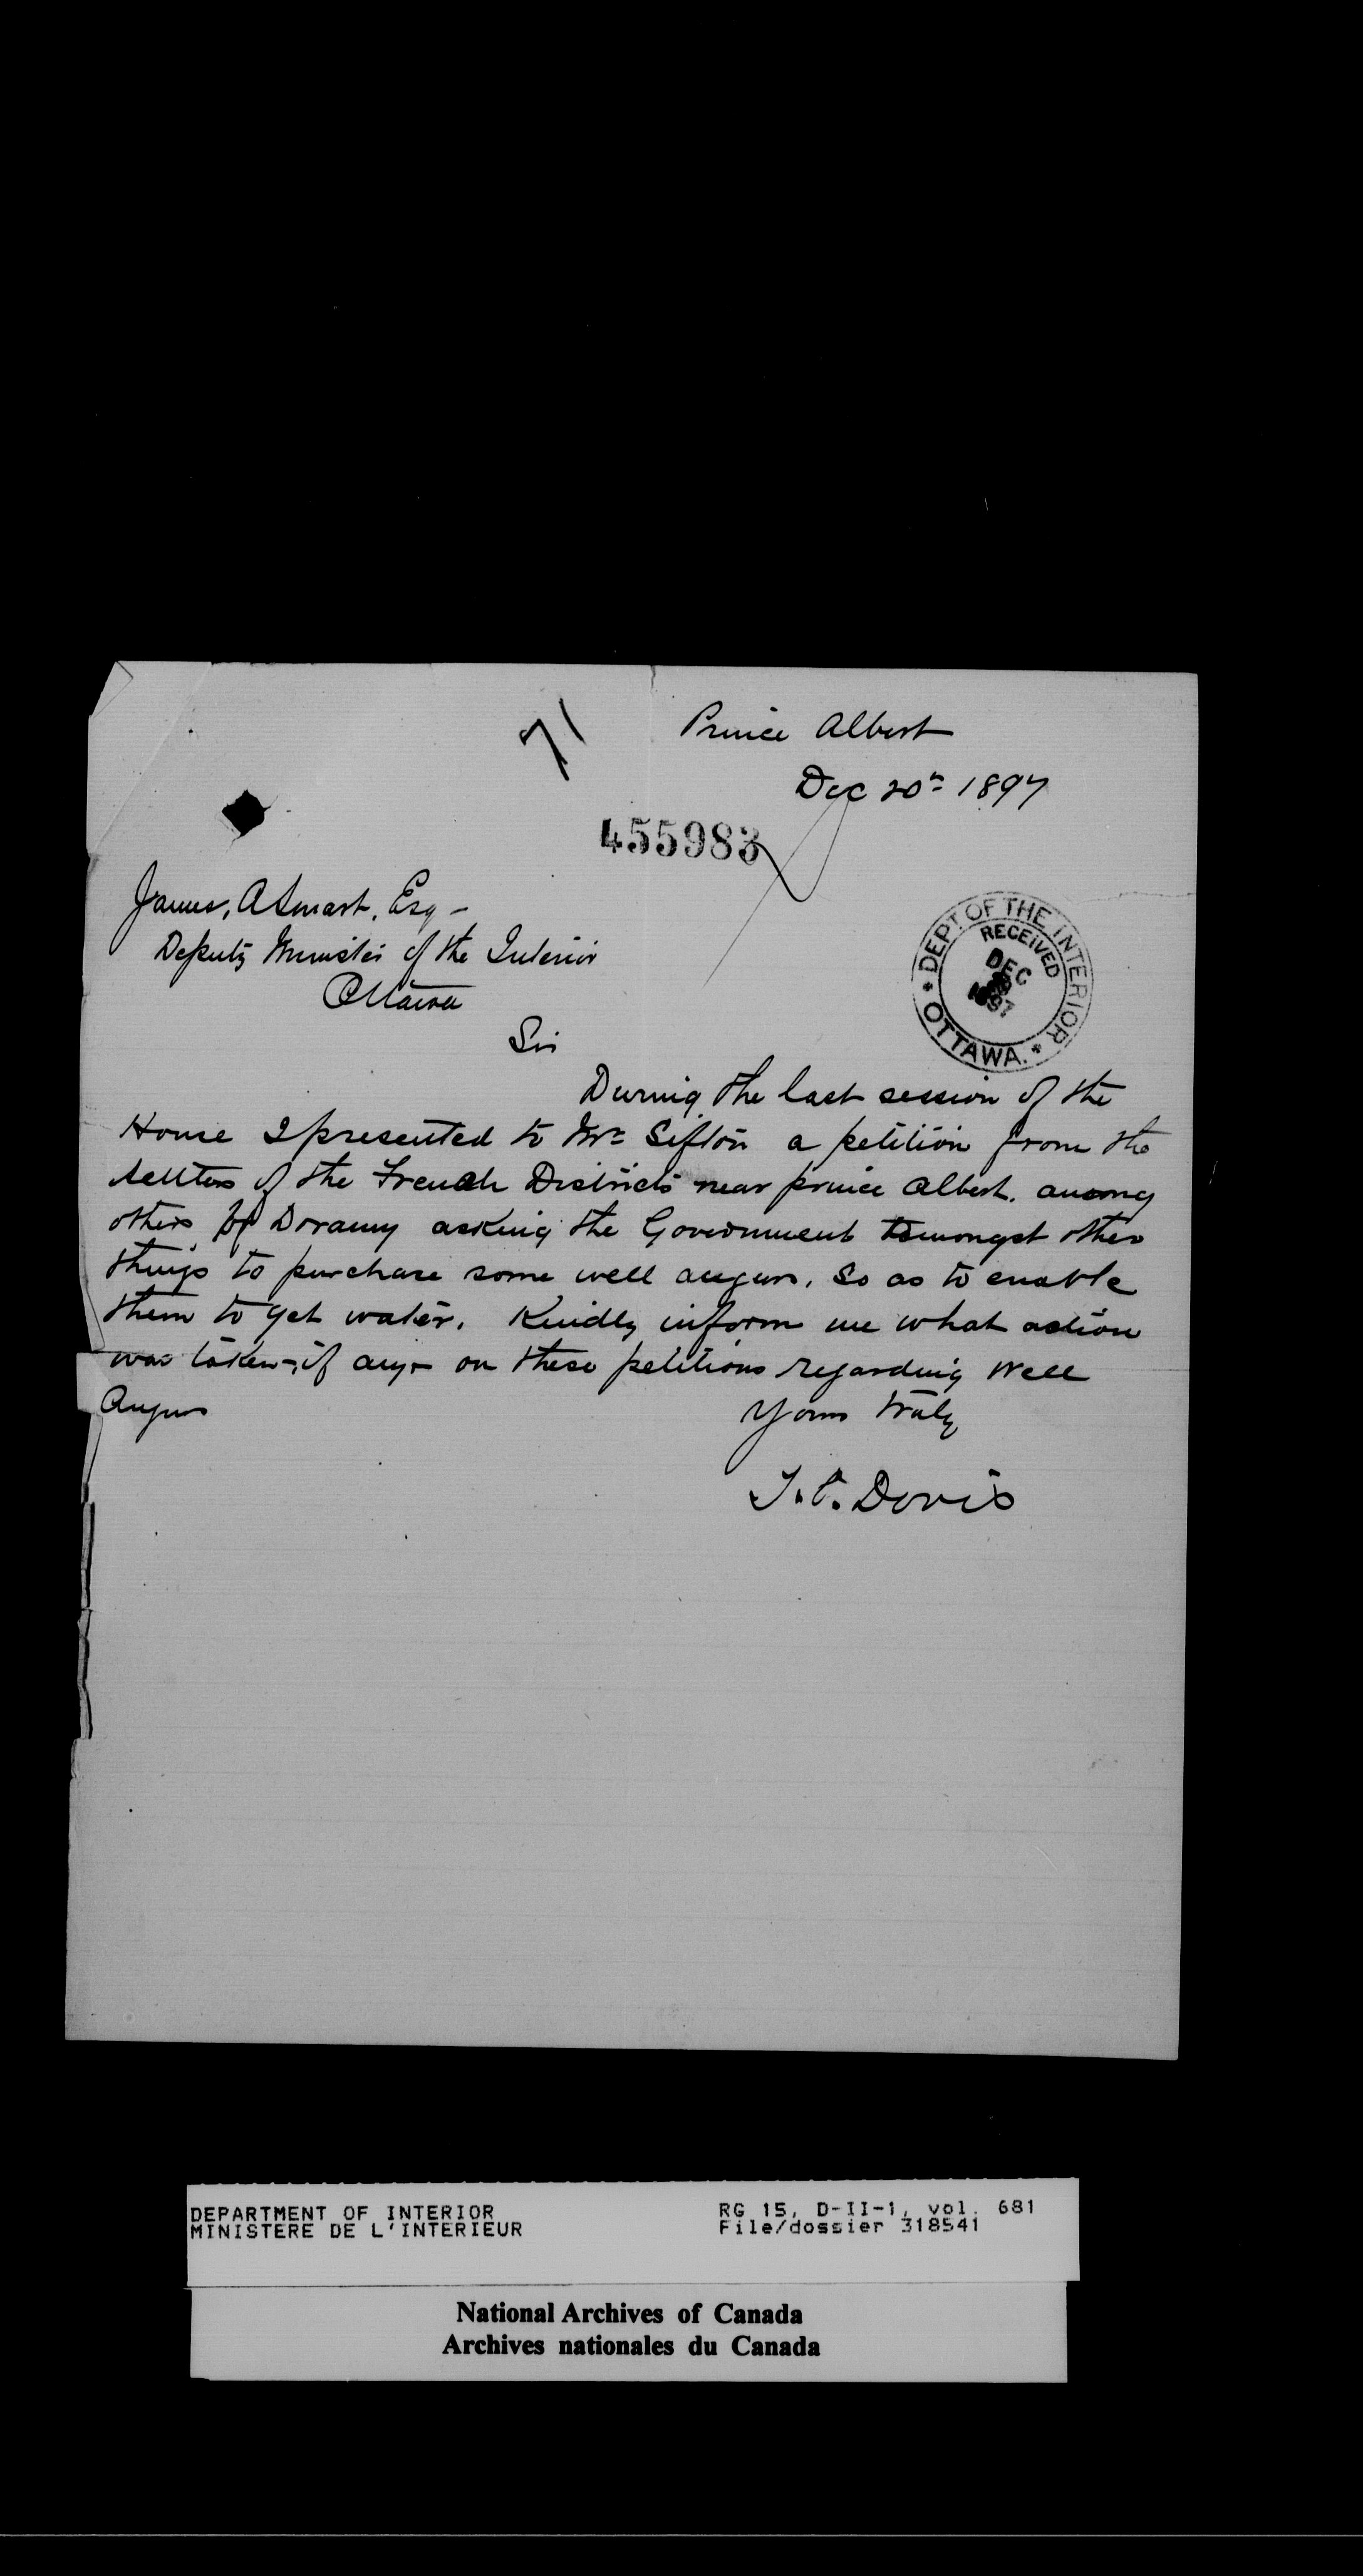 71
Prince Albert
Dec 20th 1897
455983
James, A Smart, Esq -
Deputy Minister of the Interior
Ottawa
DEPT. OF THE INTERIOR
RECEIVED
DEC
1897
OTTAWA.
Sir
During the last session of the
House I presented to Mr Sifton a petition from the
settlers of the French Districts near prince Albert. among
others asking the Government amongst other
things to purchase some well augurs, so as to enable
them to get water. Kindly inform me what action
was taken, if any - on these petitions regarding well
Augurs
Yours truly
T.O. Davis
DEPARTMENT OF INTERIOR
MINISTERE DE L'INTERIEUR
RG 15, D-II-1, vol. 681
File/dossier 318541
National Archives of Canada
Archives nationales du Canada